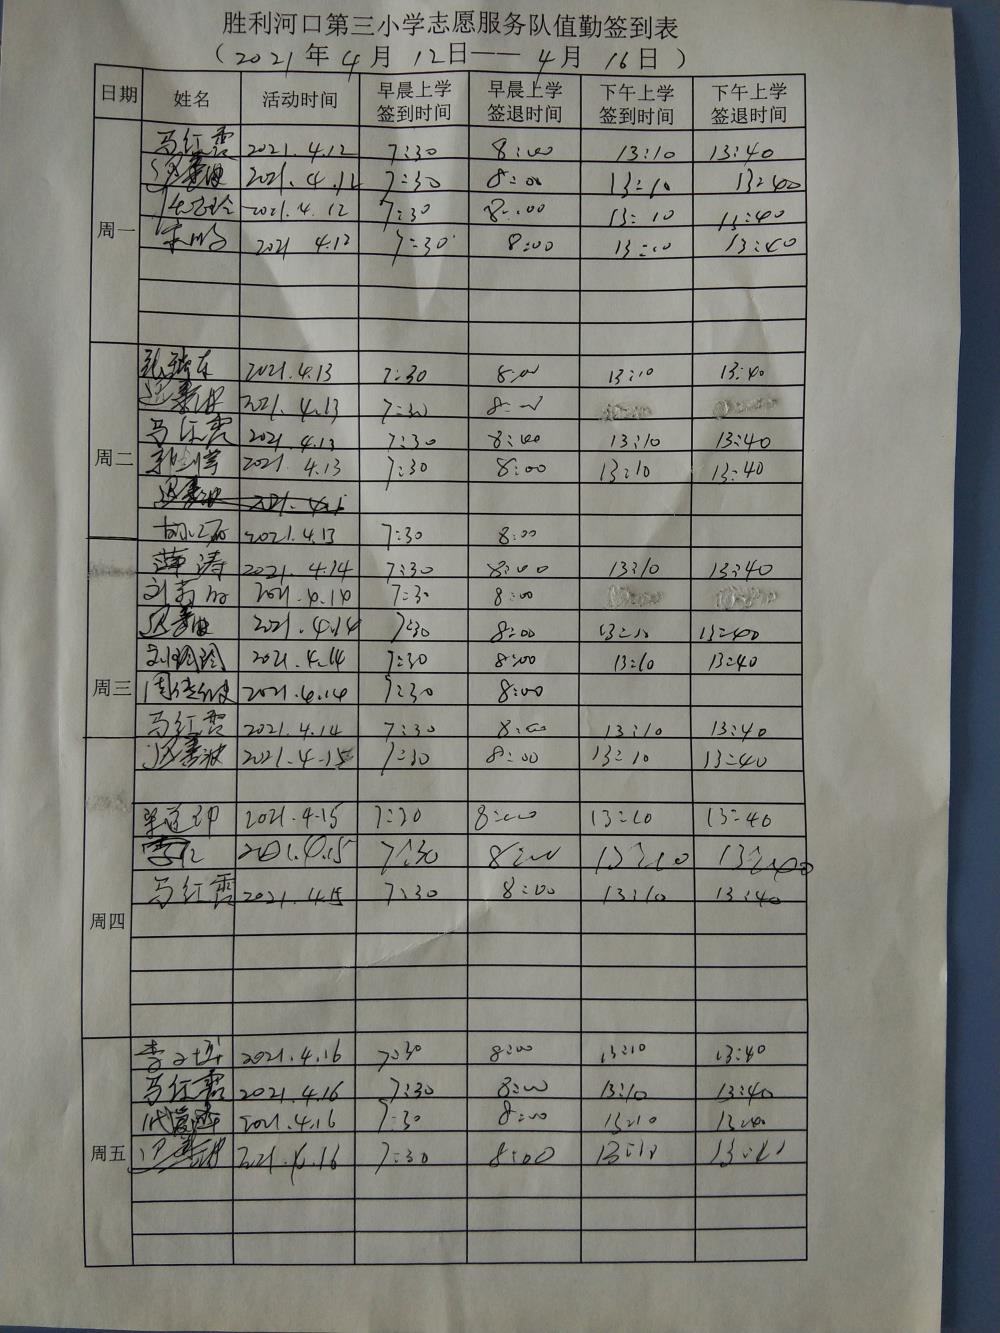 胜利河口第三小学志愿服务队值勤签到表
（2021年4月12日——4月16日）
日期 姓名 活动时间 早晨上学签到时间 早晨上学签退时间 下午上学签到时间 下午上学签退时间
周一
马红霞 2021.4.12 7:30 8:00 13:10 13:40
2021.4.12 7:30 8:00 13:10 13:40
2021.4.12 7:30 8:00 13:10 13:40
2021 4.12 7:30 8:00 13:10 13:40
周二
2021.4.13 7:30 8:00 13:10 13:40
2021.4.13 7:30 8:00
马红霞 2021 4.13 7:30 8:00 13:10 13:40
2021. 4.13 7:30 8:00 13:10 13:40
2021.4.13 7:30 8:00
周三
薛涛 2021.4.14 7:30 8:00 13:10 13:40
2021.4.14 7:30 8:00
2021.4.14 7:30 8:00 13:10 13:40
刘玲玲 2021.4.14 7:30 8:00 13:10 13:40
2021.4.14 7:30 8:00
马红霞 2021.4.14 7:30 8:00 13:10 13:40
周四
2021.4.15 7:30 8:00 13:10 13:40
2021.4.15 7:30 8:00 13:10 13:40
2021.4.15 7:30 8:00 13:10 13:40
马红霞 2021.4.15 7:30 8:00 13:10 13:40
周五
2021.4.16 7:30 8:00 13:10 13:40
马红霞 2021.4.16 7:30 8:00 13:10 13:40
2021.4.16 7:30 8:00 13:10 13:40
2021.4.16 7:30 8:00 13:10